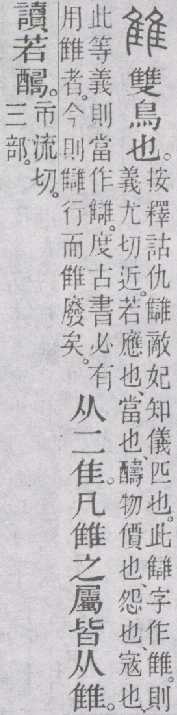 雔雙鳥也。按釋詁仇讎敵妃知儀匹也。此讎字作雔。則
義尤切近。若應也、當也、醻物價也、怨也、寇也、
此等義則當作讎。度古書必有
用雔者。今則讎行而雔廢矣。从二隹。凡雔之屬皆从雔。
讀若醻。市流切。
三部。